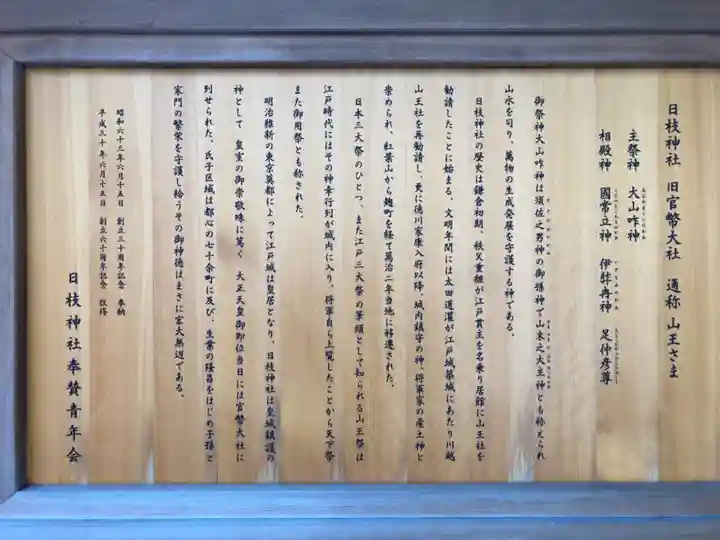 日枝神社　旧官幣大社　通称 山王さま
主祭神　大山咋神
相殿神　國常立神　伊弉冉神　足仲彦尊
御祭神大山咋神は須佐之男神の御孫神で山末之大主神とも称えられ
山水を司り、萬物の生成発展を守護する神である。
日枝神社の歴史は鎌倉初期、秩父重継が江戸貫主を名乗り居館に山王社を
勧請したことに始まる。文明年間には太田道灌が江戸城築城にあたり川越
山王社を再勧請し、更に徳川家康入府以降、城内鎮守の神、将軍家の産土神と
崇められ、紅葉山から麹町を経て萬治二年当地に移遷された。
日本三大祭のひとつ、また江戸三大祭の筆頭として知られる山王祭は
江戸時代にはその神幸行列が城内に入り、将軍自ら上覧したことから天下祭
また御用祭とも称された。
明治維新の東京奠都によって江戸城は皇居となり、日枝神社は皇城鎮護の
神として　皇室の御崇敬殊に篤く　大正天皇御即位当日には官幣大社に
列せられた。氏子区域は都心の七十余町に及び、生業の隆昌をはじめ子孫と
家門の繁栄を守護し給うその御神徳はまさに宏大無辺である。
昭和六十三年六月十五日　創立三十周年記念　奉納
平成三十年六月十五日　創立六十周年記念　改修
日枝神社奉賛青年会